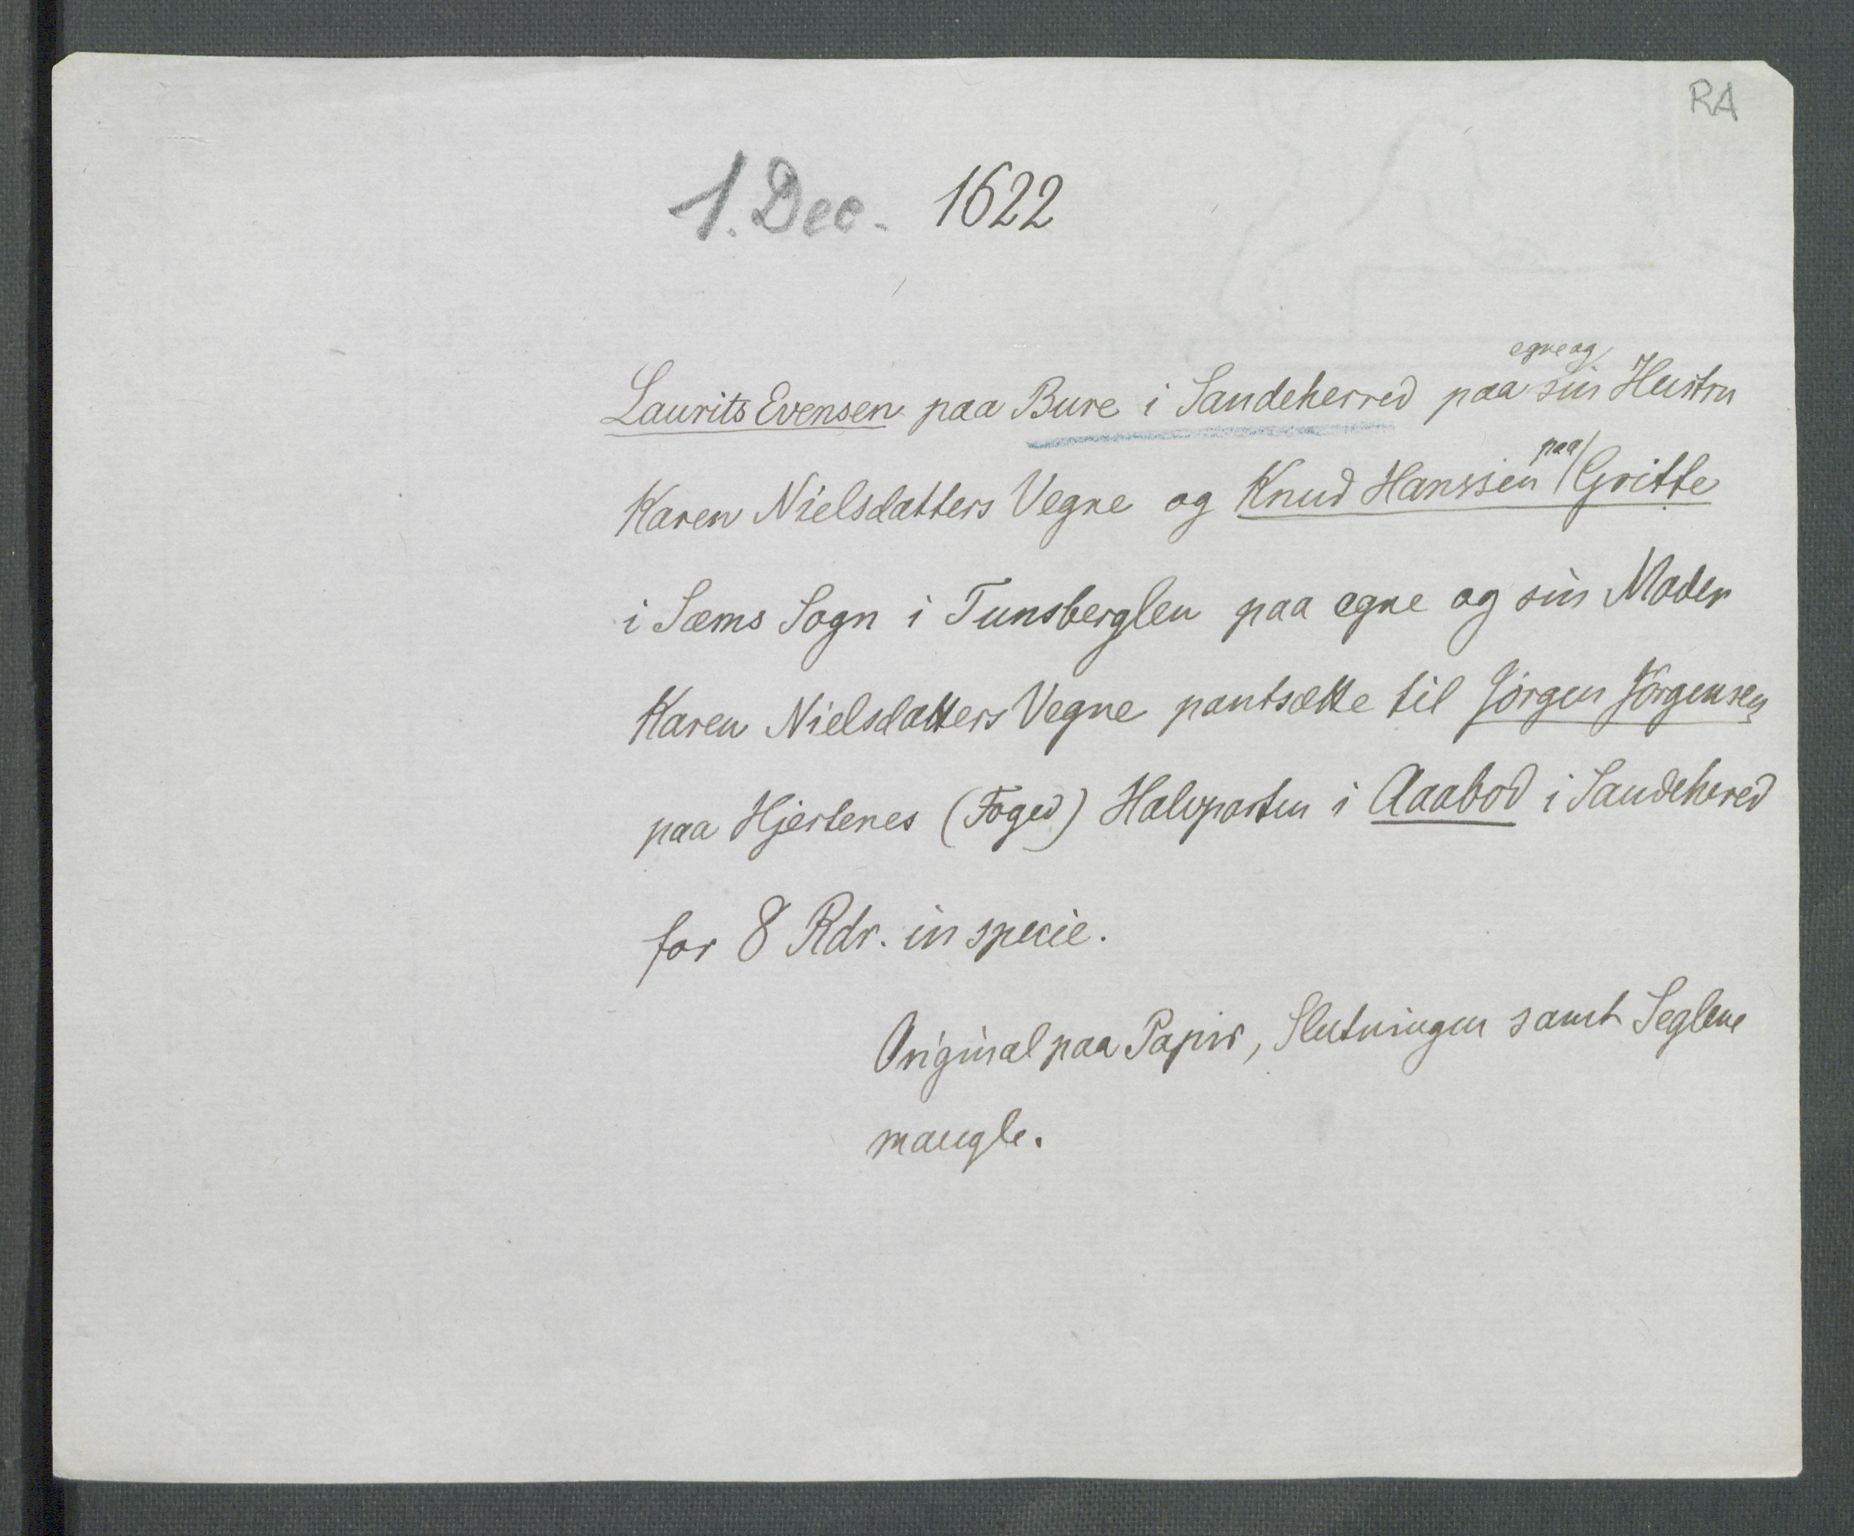 RA
1. Dec. 1622
Laurits Evensen paa Bure i Sandeherred paa egne og sin Hustru
Karen Nielsdatters Vegne og Knud Hanssen paa Gritte
i Sæms Sogn i Tunsberglen paa egne og sin Moder
Karen Nielsdatters Vegne pantsætte til Jörgen Jörgensen
paa Hjertenes (Foged) Halvparten i Aaabod i Sandehered
for 8 Rdr. in specie.
Original paa Papir, Slutningen samt Seglene
mangle.